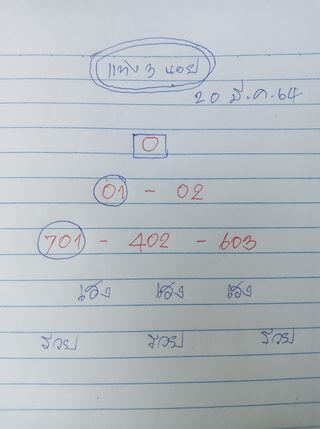 แทง 3 นอย
20 มี.ค.64
0
01 - 02
701 - 402 - 603
เฮง เฮง เฮง
รวย รวย รวย